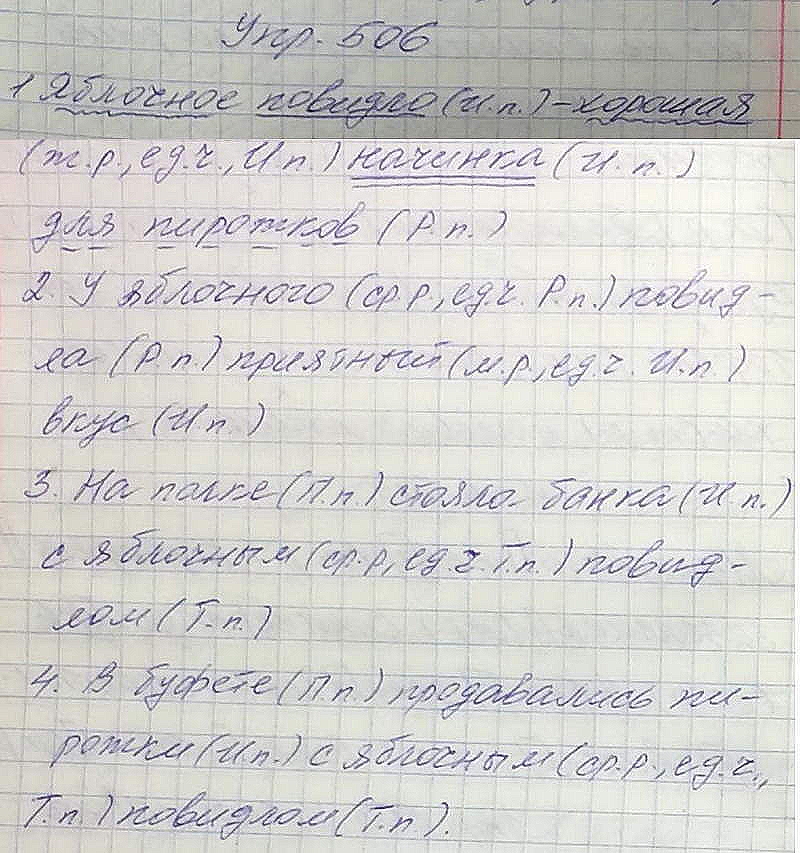 Упр. 506
1 Яблочное повидло (И.п.) – хорошая
(ж.р., ед.ч., И.п.) начинка (И.п.)
для пирожков (Р.п.)
2. У яблочного (ср.р., ед.ч. Р.п.) повид-
ла (Р.п.) приятный (м.р., ед.ч. И.п.)
вкус (И.п.)
3. На полке (П.п.) стояла банка (И.п.)
с яблочным (ср.р, ед.ч. Т.п.) повид-
лом (Т.п.)
4. В буфете (П.п.) продавались пи-
рожки (И.п.) с яблочным (ср.р., ед.ч.,
Т.п.) повидлом (Т.п.).